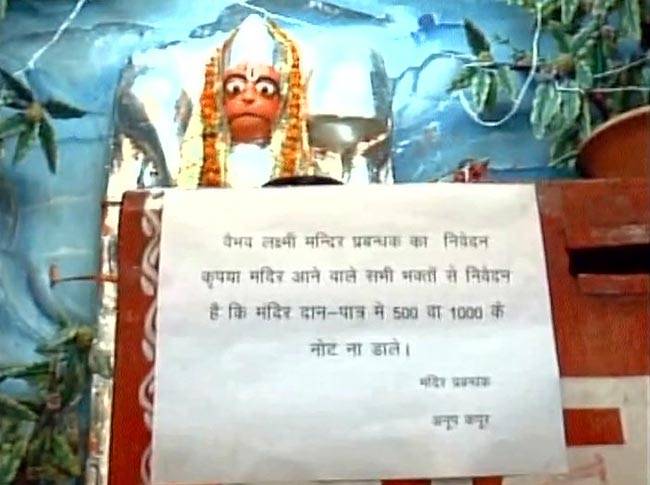 वैभव लक्ष्मी मन्दिर प्रबन्धक का निवेदन
कृपया मंदिर आने वाले सभी भक्तों से निवेदन
है कि मंदिर दान-पात्र में 500 वा 1000 के
नोट ना डाले।
मंदिर प्रबन्धक
अनूप कपूर